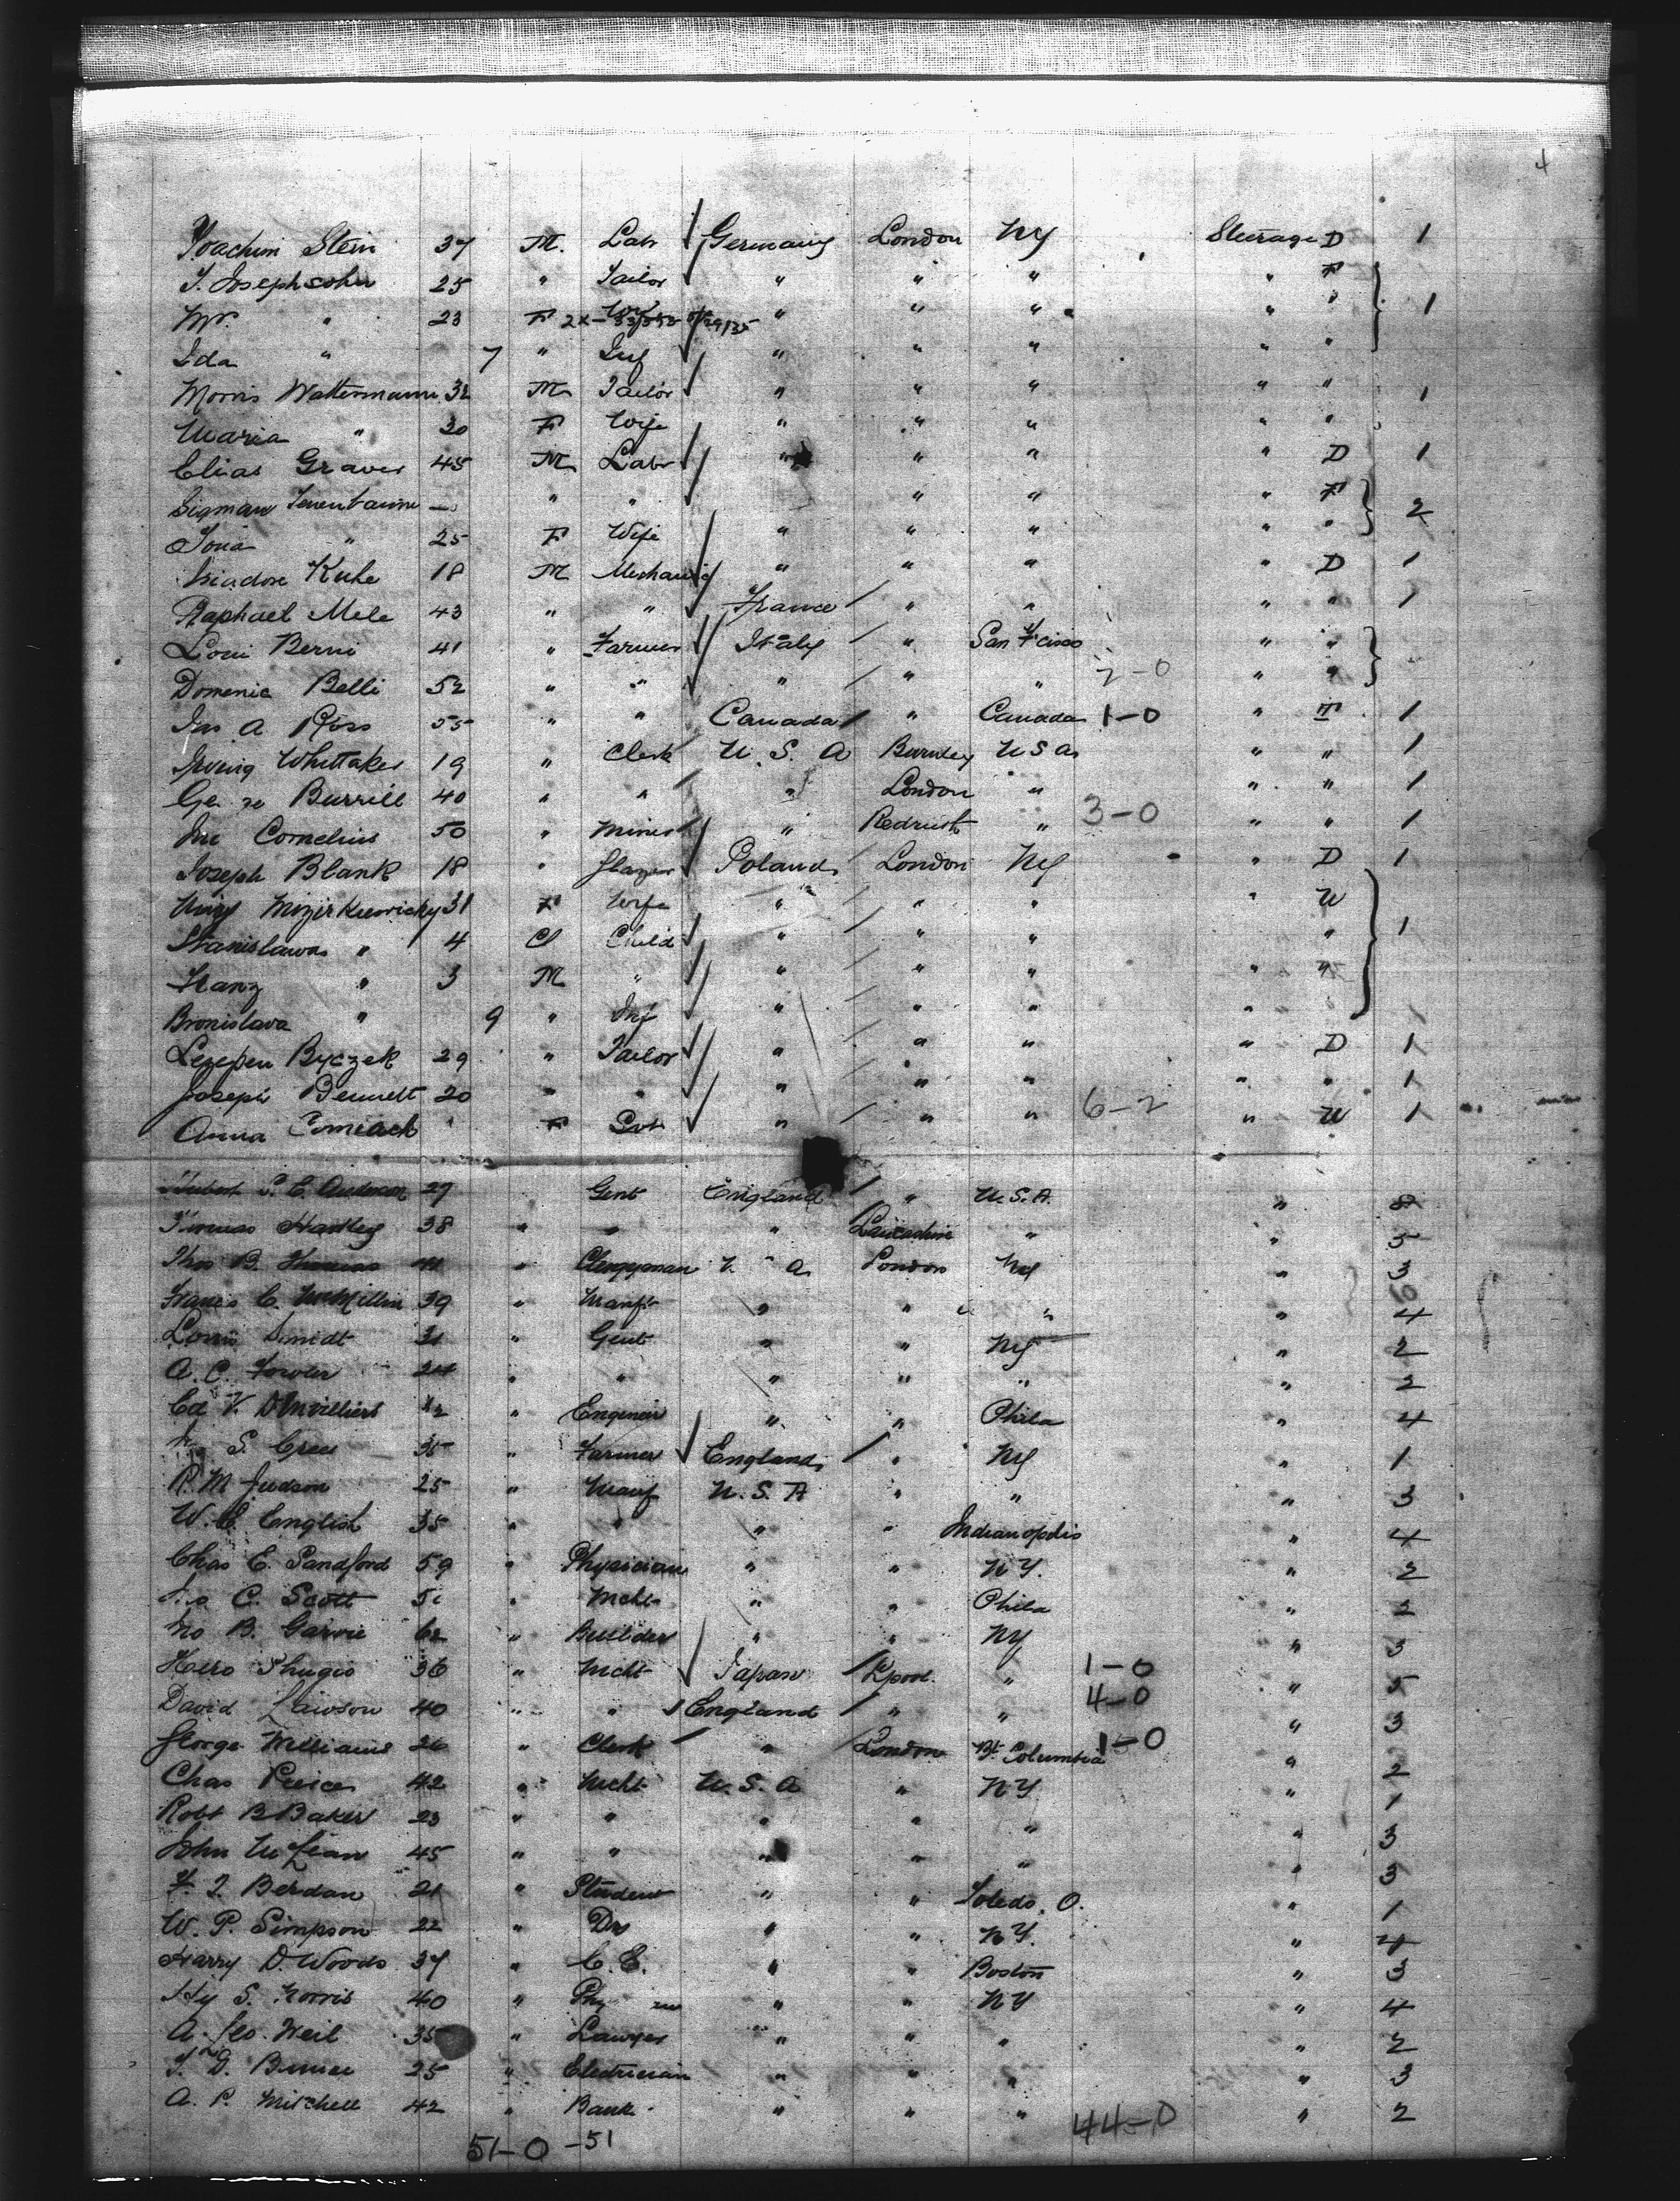 4
Joachim Stein 37 M. Lab Germany London NY Steerage D 1
J. Josephsohn 25 " Tailor " " " " F
Mr. " 23 F 2X- " " " " " 1
Ida " 7 " Inf " " " " "
Morris Wattermann 32 M Tailor " " " " " 1
Maria " 30 F Wife " " " " "
Elias Graver 45 M Labr " " " " D 1
Sigman — " " " " " " F 2
25 F Wife " " " " "
Isiadore Kuhe 18 M Mechanic " " " " D 1
Raphael Mele 43 " " France " " " " 1
Loui Berni 41 " Farmer Italy " San Fcisco " "
Domenic Belli 52 " " " " " 2-0 " "
Jas A Ross 55 " " Canada " Canada 1-0 " 1
Irving Whittaker 19 " Clerk U.S.A Burnley USA " " 1
Burrill 40 " " " London " " " 1
Jno Cornelius 50 " Miner " Redruth " 3-0 " " 1
Joseph Blank 18 " Glazer Poland London NY " D 1
31 F Wife " " " " U
Stanislawa " 4 Cl Child " " " " 1
Franz " 3 M " " " " " "
Bronislava " 9 " Inf " " " "
Byczek 29 " Tailor " " " " D 1
Joseph Bennett 20 " " " " " " " 1
Anna " F Svt " " " 6-2 " U 1
Hubert S. E. Anderson 29 Gent England " U.S.A. " 8
Thomas Hartley 38 " " " Lancashire " " 5
Thos B. Thomas 41 " Clergyman A London NY " 3
Francis C. McMillin 39 " Manfr " " " " 4
Louis Smidt 31 " Gent " " NY " 2
A. C. Fowler 24 " " " " " " 2
Ed V. 42 " Engineer " " Phila " 4
S. Cree 35 " Farmer England " NY " 1
R. M. Judson 25 " Manf U.S.A " " " 3
W. E. English 35 " " " " Indianopolis " 4
Chas E. Sandford 59 " Physician " " N.Y. " 2
C. Scott 51 " Mcht " " Phila " 2
Jno B. Garvie 62 " Builder " " NY " 3
Hero Shugio 36 " Mcht Japan Lpool. " 1-0 " 5
David Lawson 40 " " England " " 4-0 " 3
George Williams 26 " Clerk " London Bt. Columbia 1-0 " 2
Chas Peirce 42 " Mcht U.S.A " NY " 1
Robt B Baker 23 " " " " " " 3
John McLean 45 " " " " " " 3
F. J. Berdan 21 " Student " " Toledo. O. " 1
W. P. Simpson 22 " Do " " N.Y. " 4
Harry D. Woods 37 " C.E. " " Boston " 3
Hy S. Norris 40 " " " NY " 4
A. Leo. Weil 35 " Lawyer " " " " 2
T. D. Bunce 25 " Electrician " " " " 3
A. P. Mitchell 42 " Bank " " " 44-0 " 2
51-0 -51